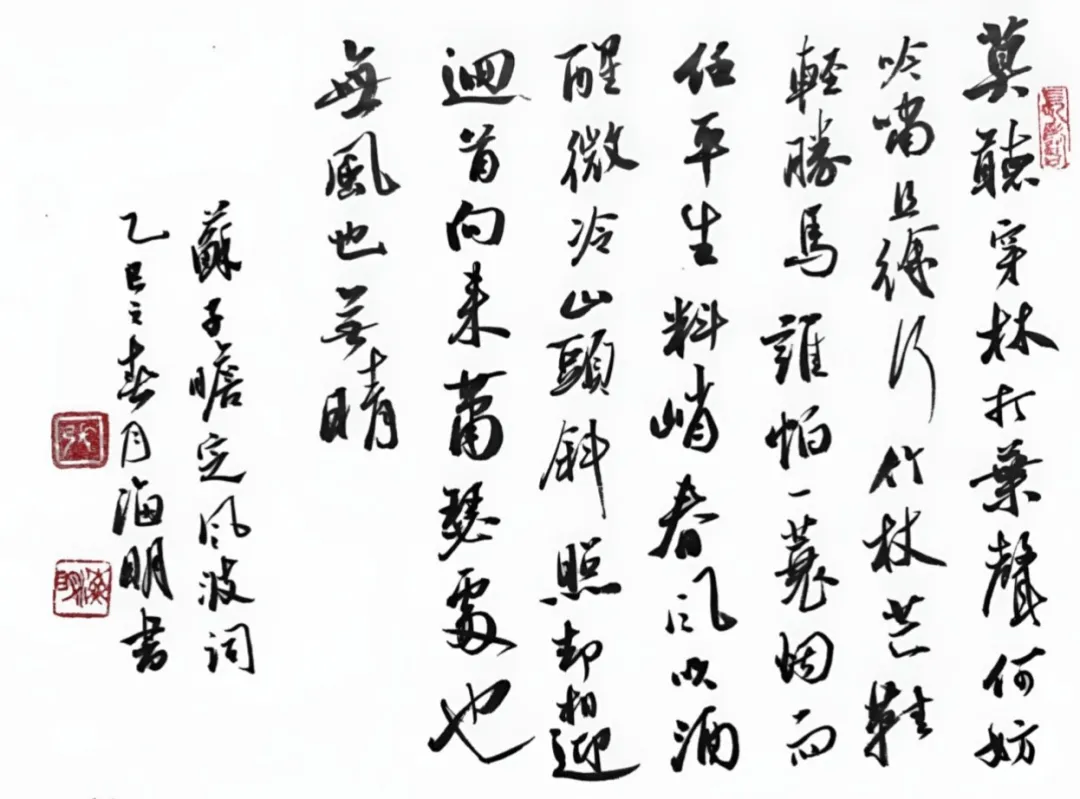 莫聽穿林打葉聲何妨
吟嘯且徐行竹杖芒鞋
軽勝馬誰怕一蓑烟雨
任平生料峭春风吹酒
醒微冷山頭斜照却相迎
迴首向来蕭瑟處也
無風也無晴
蘇子瞻定风波词
乙巳之春月海明书
张
海明